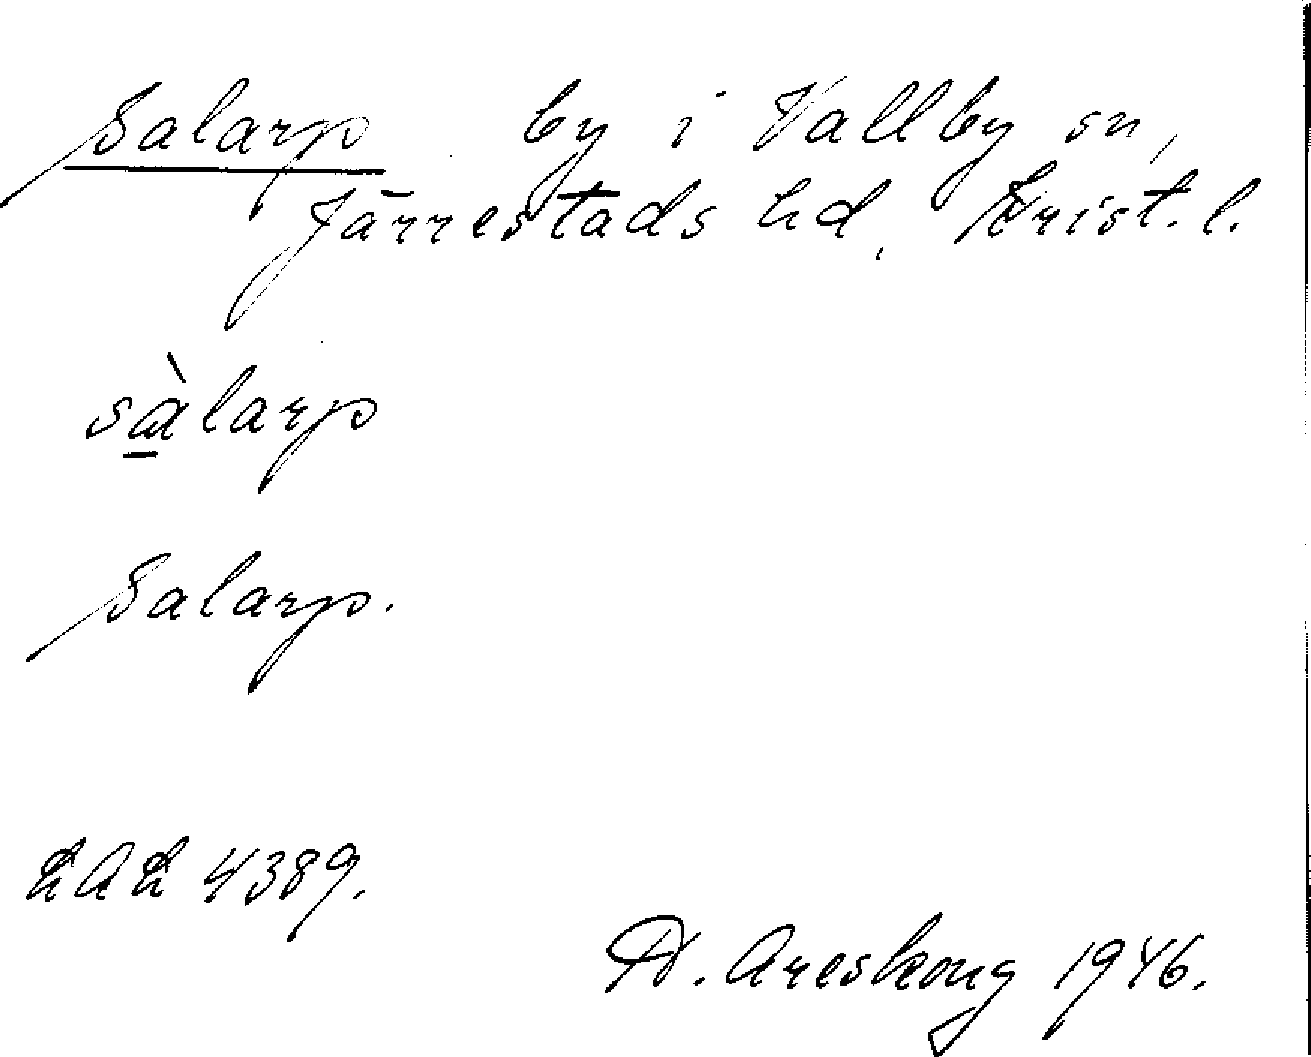 Salarp by i Vallby sn,
Järrestads hd, Krist. l.
sɑ̱̀larp
Salarp.
LAL 4389.
Areskoug 1946.